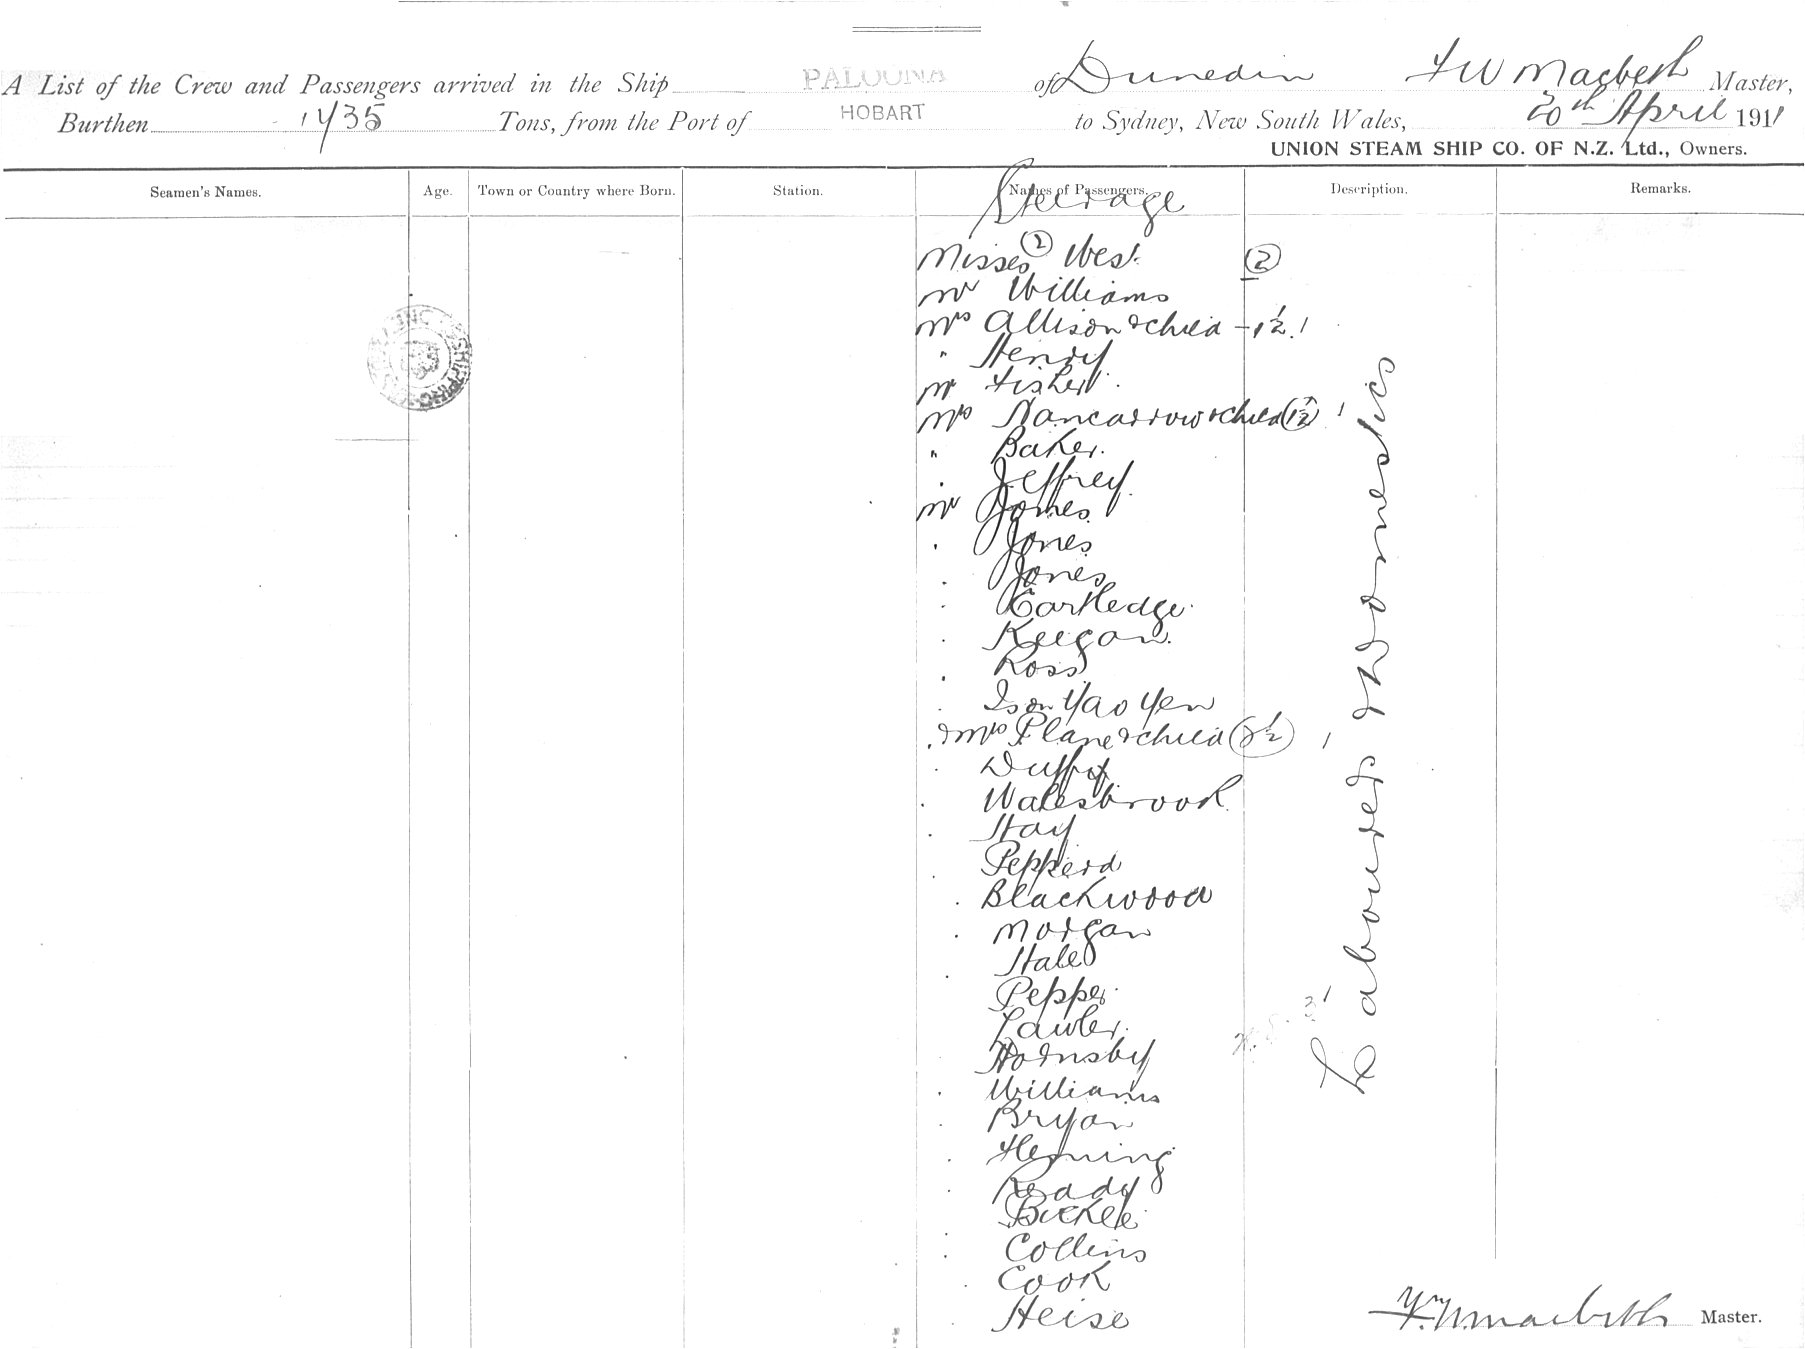 A List of the Crew and Passengers arrived in the Ship PALOONA of Dunedin F W Macbeth Master,
Burthen 1435 Tons, from the Port of HOBART to Sydney, New South Wales, 20th April 1911
UNION STEAM SHIP CO. OF N.Z. Ltd., Owners.
Seamen's Names. Age. Town or Country where Born. Station. Names of Passengers. Description. Remarks.
Steerage
Misses (2) West (2)
Mr Williams
Mrs Allison & child - 1 1/2 1
" Henry
Mr Fisher
Mrs Nancarrow & child (1 1/2) 1
" Baker
" Jeffrey
Mr Jones
" Jones
" Jones
" Cartledge
" Keegan
" Ross
" Yao Yen
" & Mrs Plane & child (2 1/2) 1
" Duffy
" Walesbrook
" Hay
" Pepperd
" Blackwood
" Morgan
" Hale
Pepper
Lawler
Hornsby
" Williams
" Bryan
" Fleming
" Ready
Collins
" Cook
Heise
Labourers & Domestics
SHIPPING
F. W. Macbeth Master.